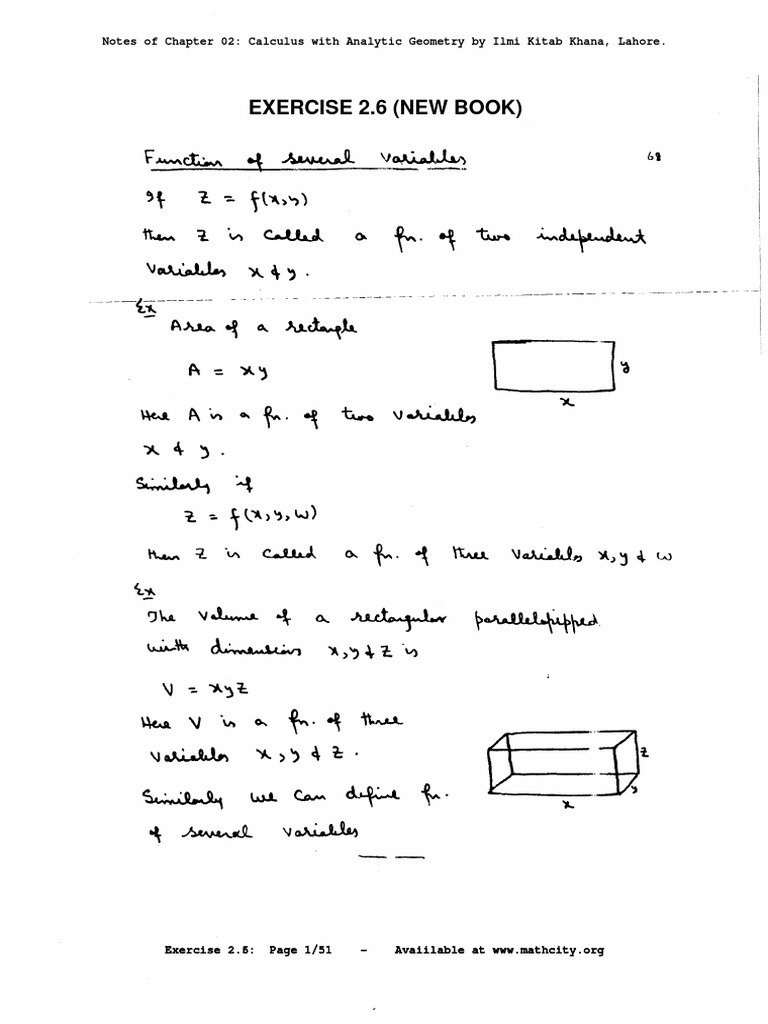 Notes of Chapter 02: Calculus with Analytic Geometry by Ilmi Kitab Khana, Lahore.
EXERCISE 2.6 (NEW BOOK)
Function of several variables
68
If Z = f(x,y)
then Z is called a fn. of two independent
variables x & y.
Ex
Area of a rectangle
A = xy
y
x
Here A is a fn. of two variables
x & y.
Similarly if
Z = f(x,y,w)
then Z is called a fn. of three variables x,y & w
Ex
The volume of a rectangular parallelopipped
with dimensions x,y & z is
V = xyz
Here V is a fn. of three
variables x,y & z.
z
y
x
Similarly we can define fn.
of several variables
Exercise 2.5: Page 1/51 - Avaiilable at www.mathcity.org